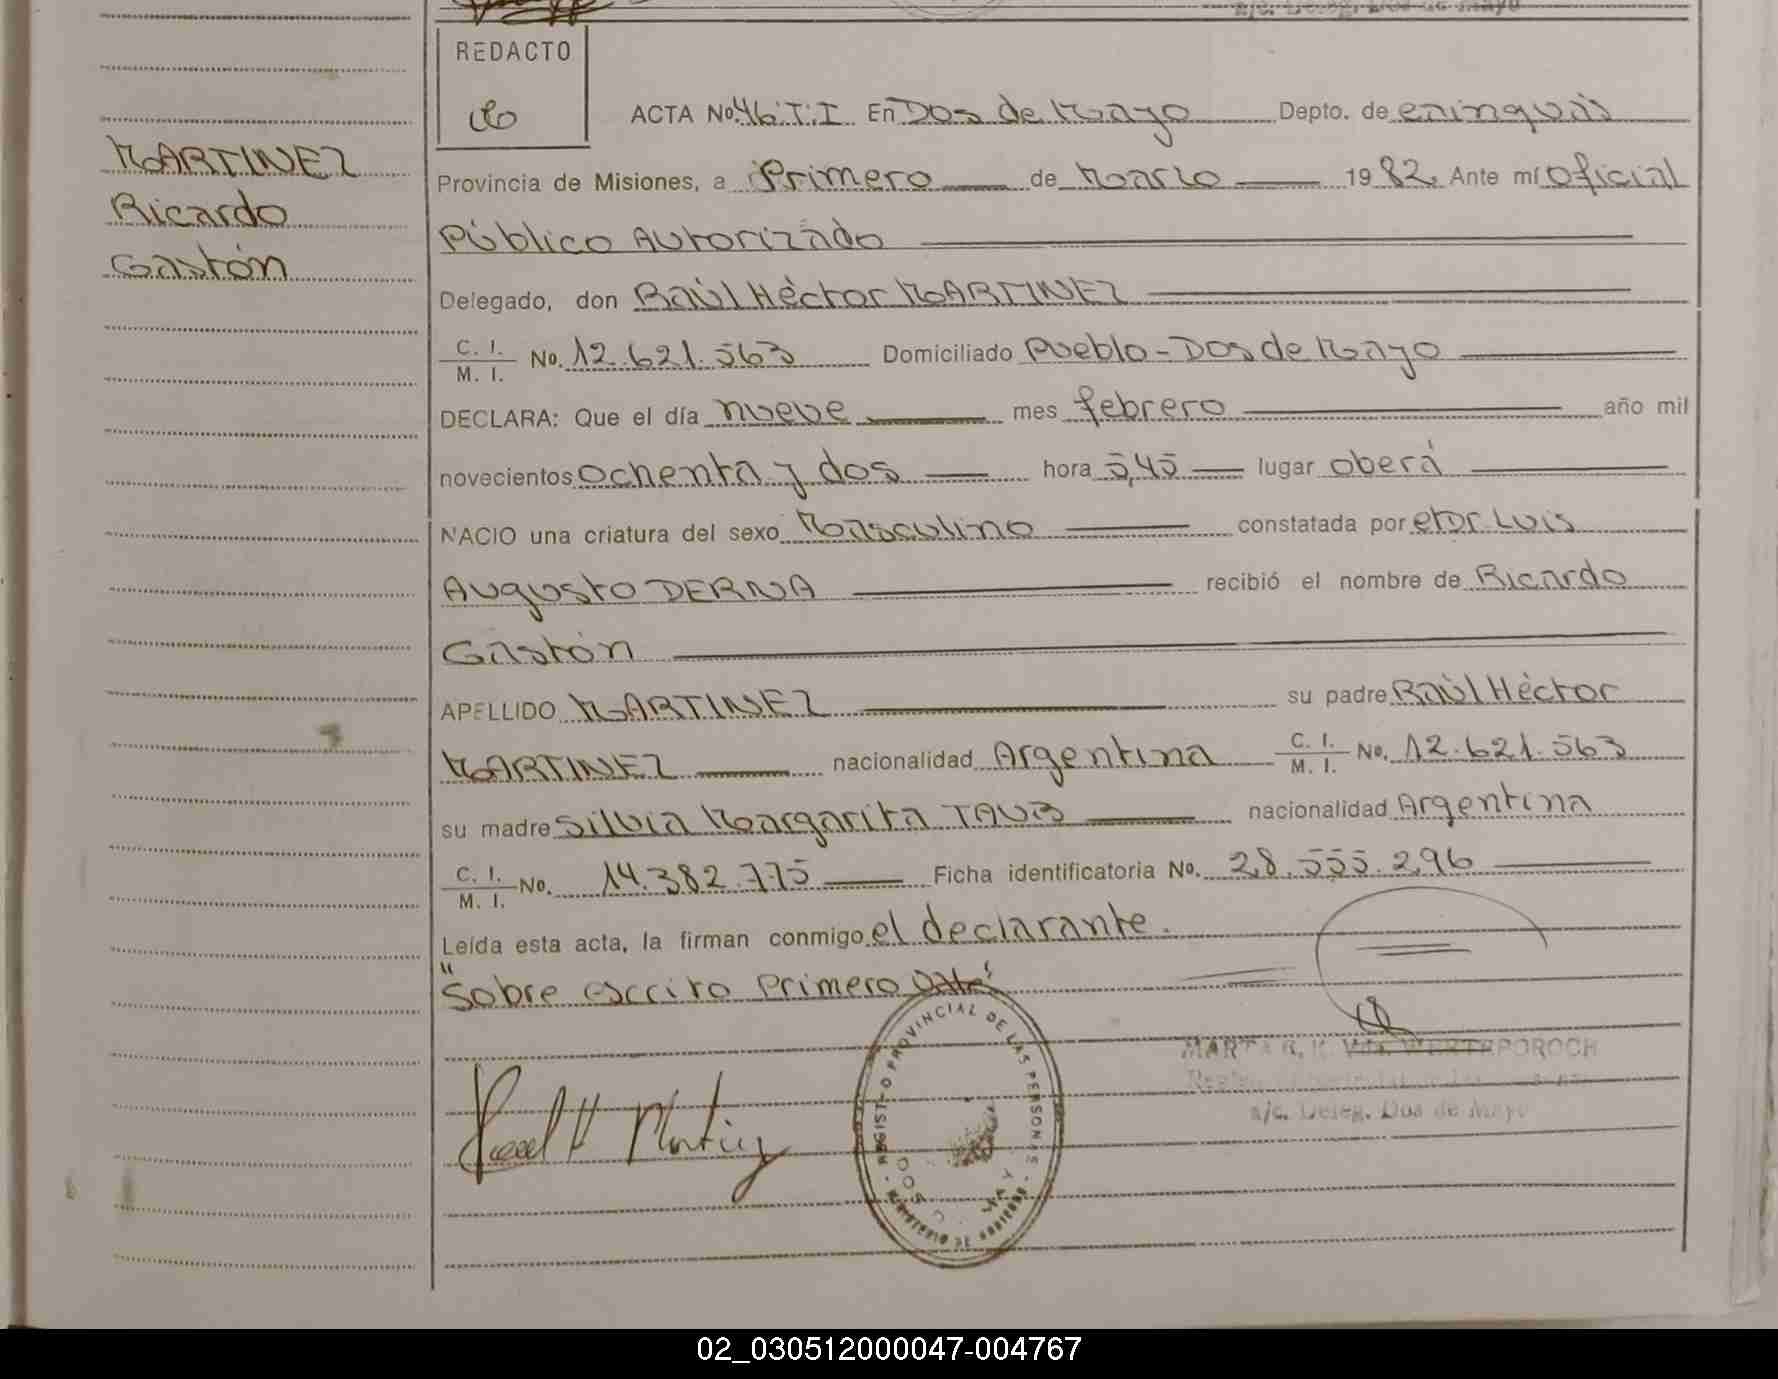 a/c. Deleg. Dos de Mayo
REDACTO
ACTA No. 46:T:I En Dos de Mayo Depto. de Cainguás
MARTINEZ
Ricardo
Gastón
Provincia de Misiones, a Primero de Marzo 1982. Ante mí Oficial
Público Autorizado
Delegado, don Raúl Héctor MARTINEZ
C. I.
M. I. No. 12.621.563 Domiciliado Pueblo-Dos de Mayo
DECLARA: Que el día nueve mes febrero año mil
novecientos ochenta y dos hora 5,45 lugar Oberá
NACIO una criatura del sexo Masculino constatada por el Dr. Luis
Augusto DERNA recibió el nombre de Ricardo
Gastón
APELLIDO MARTINEZ su padre Raúl Héctor
MARTINEZ nacionalidad Argentina C. I.
M. I. No. 12.621.563
su madre Silvia Margarita TAUB nacionalidad Argentina
C. I.
M. I. No. 14.382.775 Ficha identificatoria No. 28.555.296
Leída esta acta, la firman conmigo el declarante.
"Sobre escrito Primero Vale"
Raul H Martinez
REGISTRO PROVINCIAL DE LAS PERSONAS
MARTA R. K. Vda. WERTEPOROCH
a/c. Deleg. Dos de Mayo
02_030512000047-004767